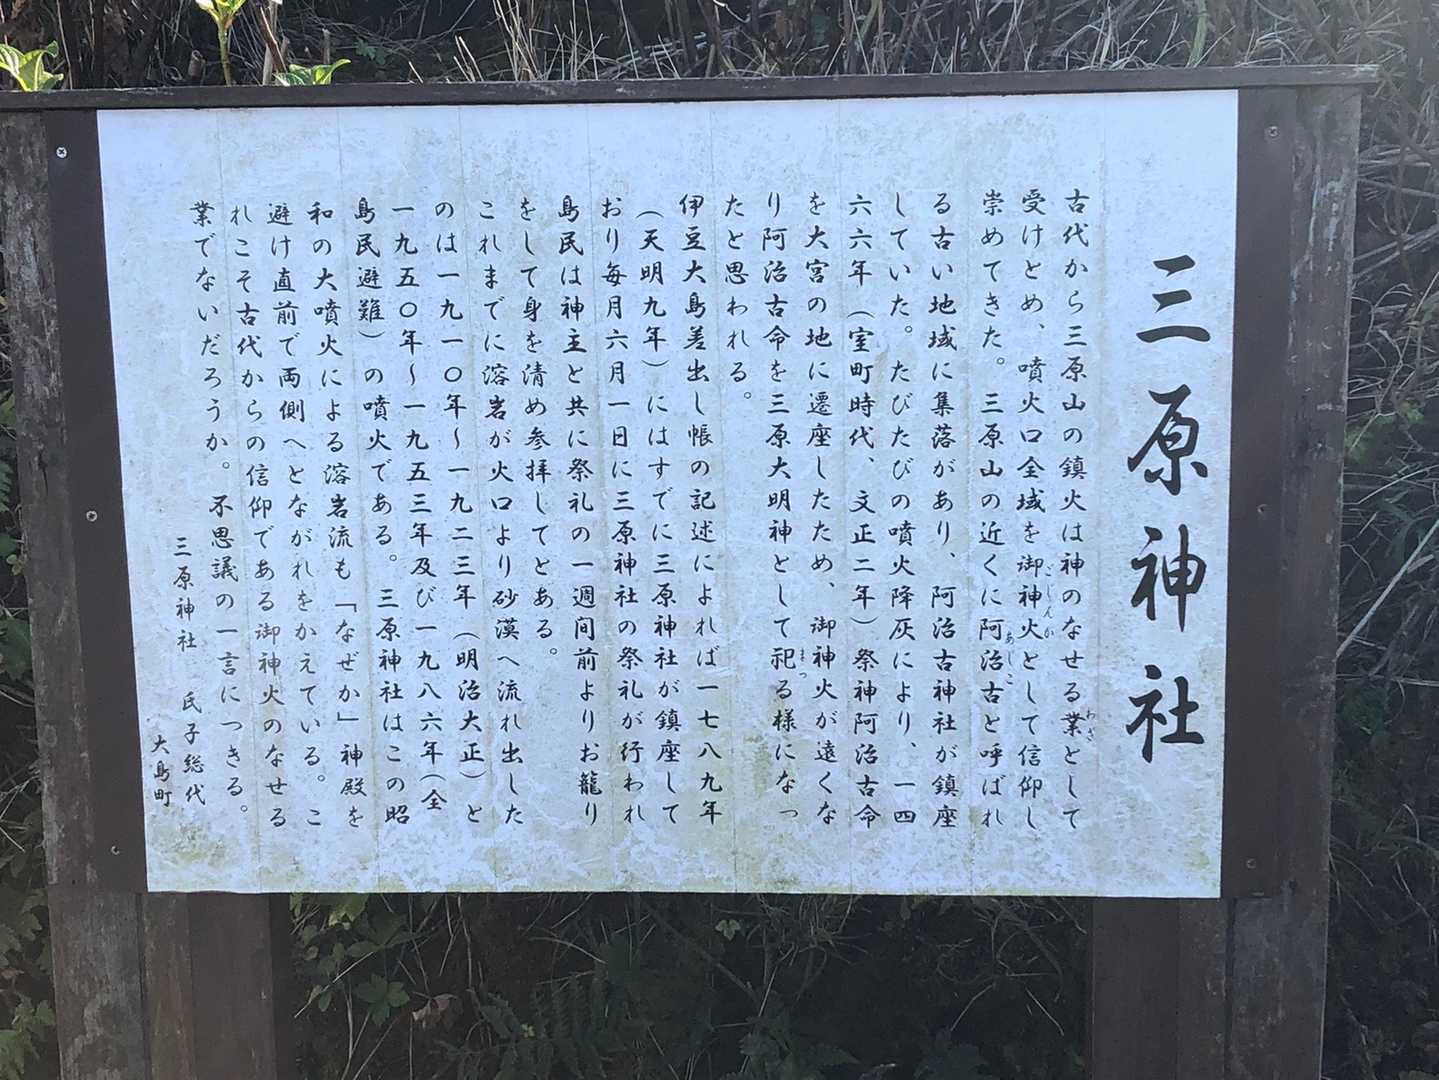 三原神社
古代から三原山の鎮火は神のなせる業わざとして
受けとめ、噴火口全域を御神火ごじんかとして信仰し
崇めてきた。三原山の近くに阿治古あじこと呼ばれ
る古い地域に集落があり、阿治古神社が鎮座
していた。たびたびの噴火降灰により、一四
六六年（室町時代、文正二年）祭神阿治古命
を大宮の地に遷座したため、御神火が遠くな
り阿治古命を三原大明神として祀まつる様になっ
たと思われる。
伊豆大島差出し帳の記述によれば一七八九年
（天明九年）にはすでに三原神社が鎮座して
おり毎月六月一日に三原神社の祭礼が行われ
島民は神主と共に祭礼の一週間前よりお籠り
をして身を清め参拝してとある。
これまでに溶岩が火口より砂漠へ流れ出した
のは一九一〇年～一九二三年（明治大正）と
一九五〇年～一九五三年及び一九八六年（全
島民避難）の噴火である。三原神社はこの昭
和の大噴火による溶岩流も「なぜか」神殿を
避け直前で両側へとながれをかえている。こ
れこそ古代からの信仰である御神火のなせる
業でないだろうか。不思議の一言につきる。
三原神社 氏子総代
大島町